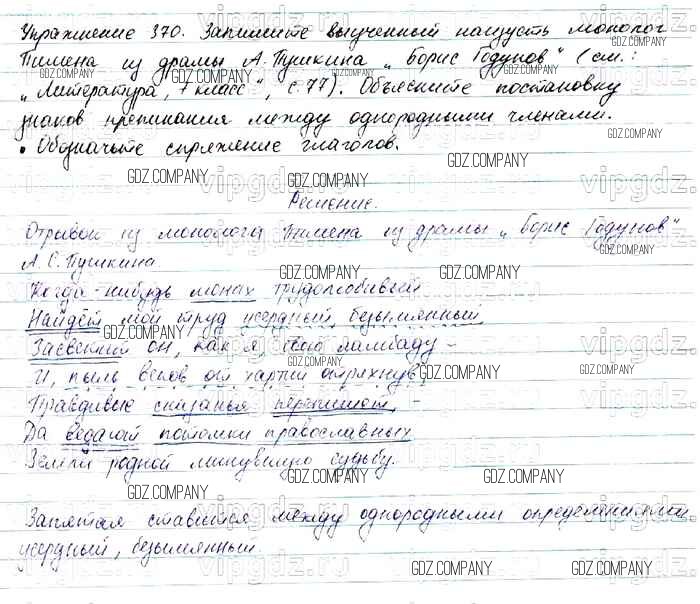 Упражнение 370. Запишите выученный наизусть монолог
Пимена из драмы А. Пушкина „Борис Годунов“ (см.:
„Литература, 7 класс“, с. 77). Объясните постановку
знаков препинания между однородными членами.
• Обозначьте спряжение глаголов.
Решение.
Отрывок из монолога Пимена из драмы „Борис Годунов“
А. С. Пушкина
Когда-нибудь монах трудолюбивый
Найдёт мой труд усердный, безымянный
Засветит он, как я свою лампаду –
И, пыль веков от хартий отряхнув,
Правдивые сказанья перепишет, –
Да ведают потомки православных
Земли родной минувшую судьбу.
Запятая ставится между однородными определениями
усердный, безымянный.
GDZ.COMPANY
vipgdz.ru